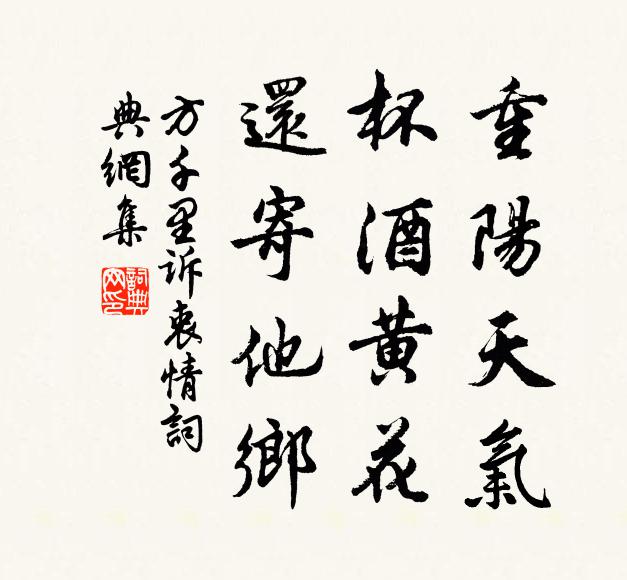 重陽天氣
杯酒黃花
還寄他鄉
方千里訴衷情詞
典網集
詞典網印